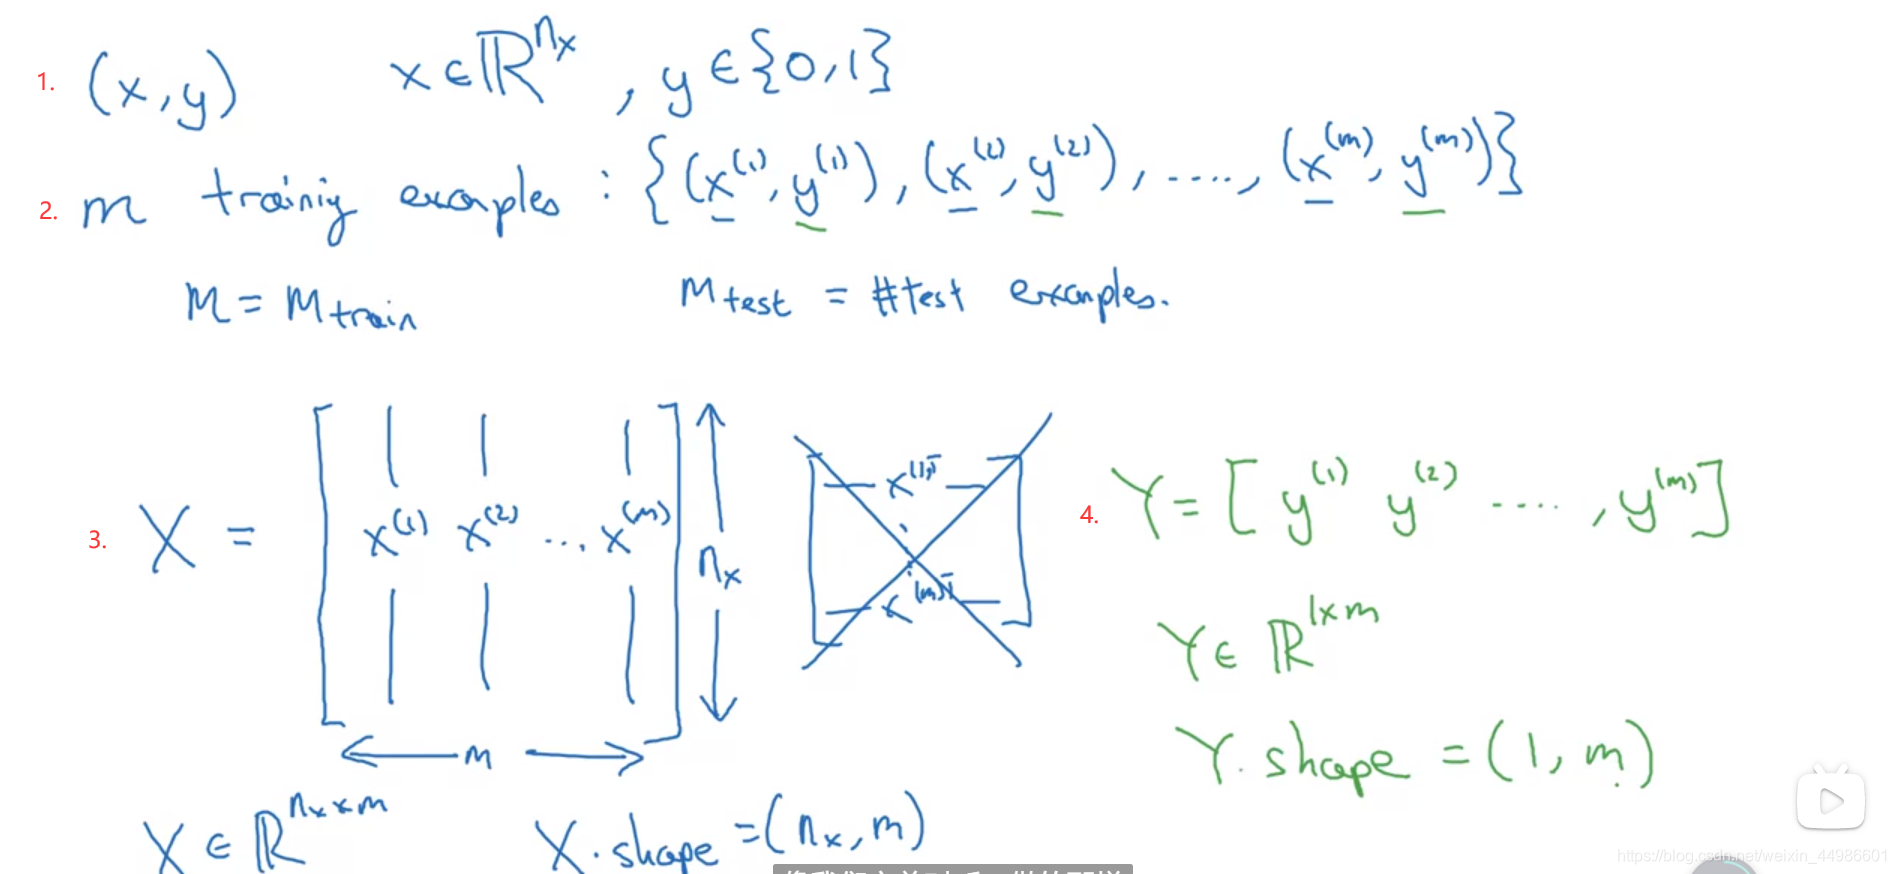 1. (x, y) x ∈ ℝ^{n_x}, y ∈ {0, 1}
2. m trainiy examples : {(x^{(1)}, y^{(1)}), (x^{(2)}, y^{(2)}), ...., (x^{(m)}, y^{(m)})}
M = M_{train} M_{test} = #test examples.
3. X = [x^{(1)} x^{(2)} ... x^{(m)}] n_x
m
x^{(1)T}
x^{(m)T}
X ∈ ℝ^{n_x × m} X.shape = (n_x, m)
4. Y = [y^{(1)} y^{(2)} ...., y^{(m)}]
Y ∈ ℝ^{1×m}
Y.shape = (1, m)
https://blog.csdn.net/weixin_44986601